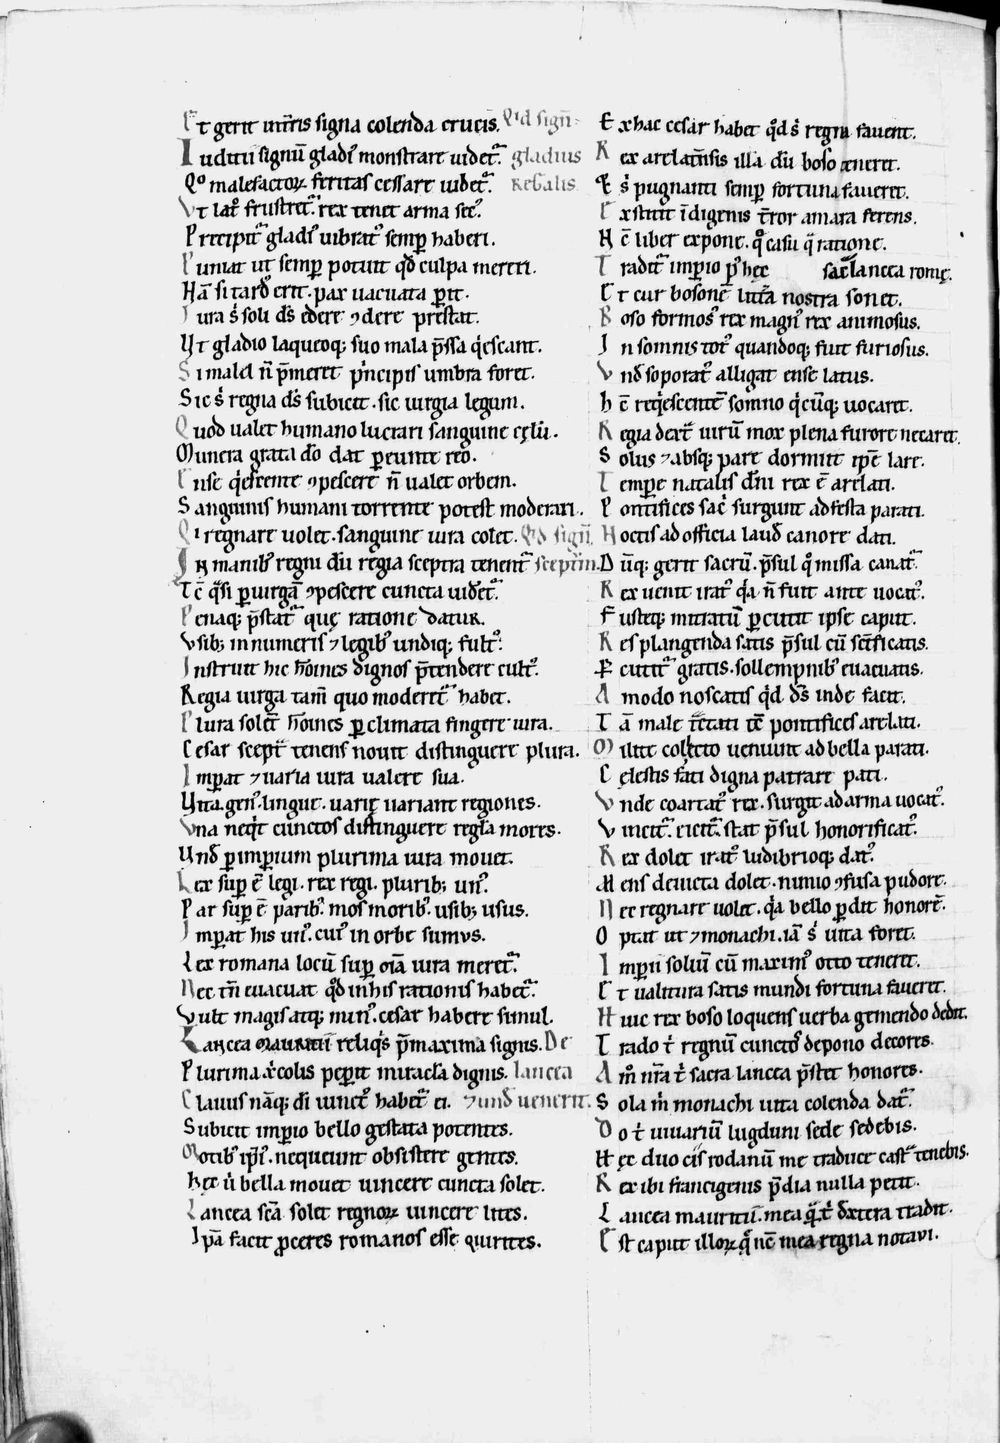 Et gerit int̄ris signa colenda crucis. Qid sign̄
Iuditii signū gladiꝰ monstrare uidet᷑. gladius
Qo malefactoꝝ feritas cessare uidet᷑. regalis
Vt latꝰ frustret᷑ rex tenet arma sec̄.
Precipit᷑ gladiꝰ uibratꝰ semꝑ haberi.
Puniat ut semꝑ potuit qd̄ culpa mereri.
Nā si tardꝰ erit. pax uacuata ꝑit.
Iura s; soli ds̄ edere ⁊dere prestat.
Vt gladio laqueoq; suo mala p̄ssa q̇escant.
Si malel n̄ p̄meret pͥncipis umbra foret.
Sic s; regna ds̄ subicit. sic uirgia legum.
Quod ualet humano lucrari sanguine cęlū.
Munera grata do dat ꝑeunte reo.
Ense q̇escente ꝯpescere n̄ ualet orbem.
Sanguinis humani torrente potest moderari.
Qi regnare uolet. sanguine iura colet. Qid sign̄
In manibꝰ regni dū regia sceptra tenent᷑ sceptrum.
Tc̄ q̄si ꝑ uirgā ꝯpescere cuncta uidet᷑.
Penaq; p̄stat᷑ quę ratione datur.
Vsib; innumeris ⁊ legibꝰ undiq; fultꝰ.
Instruit hic hōines dignos p̄tendere cultꝰ.
Regia uirga tam̄ quo moderet᷑ habet.
Plura solet᷑ hōines ꝑ climata fingere iura.
Cesar sceptr̄ tenens nouit distinguere plura.
Imꝑat ⁊ uaria iura ualere sua.
Vita. genꝰ. linguę. uarię uariant regiones.
Vna neq̇t cunctos distinguere regla mores.
Vnd̄ ꝑ imꝑium plurima iura mouet.
Lex suꝑ ē legi. rex regi. plurib; unꝰ.
Par suꝑ ē paribꝰ. mos moribꝰ. usib; usus.
Imꝑat his unꝰ. cuiꝰ in orbe sumus.
Lex romana locū suꝑ oīa iura meret᷑.
Nec tn̄ euacuat qd̄ inhis rationis habet᷑.
Vult magis atq; minꝰ. cesar habere simul.
Lancea mauritii reliq̇s p̄maxima signis. De
Plurima xͥcolis peperit miracla dignis. lancea
Clauus nāq; dī iunctꝰ habet᷑ ei. ⁊ und̄ uenerit.
Subicit imꝑio bello gestata potentes.
Motibꝰ ip̄iꝰ. nequeunt obsistere gentes.
Hęc ů bella mouet uincere cuncta solet.
Lancea sc̄a solet regnoꝝ uincere lites.
Ipā facit ꝓceres romanos esse quirites.
Exhac cesar habet qd̄ s; regna fauent.
Rex arelatn̄sis illā dū boso teneret.
Et s; pugnanti semꝑ fortuna faueret.
Extitit īdigenis t̄ror amara ferens.
Hc̄ liber expone. qͦ casu q̄ ratione.
Tradit᷑ imꝑio pꝰ hęc sac̄ lancea romę.
Et cur bosonē litt̄a nostra sonet.
Boso formosꝰ rex magnꝰ rex animosus.
In somnis totꝰ quandoq; fuit furiosus.
Vnd̄ soporatꝰ alligat ense latus.
Hc̄ req̇escente somno q̇cūq; uocaret.
Regia dext᷑ uirū mox plena furore necaret.
Solus ⁊ absq; pare dormiit ip̄e lare.
Tempore natalis dn̄i rex ē arelati.
Pontifices sac̄ surgunt ad festa parati.
Noctis ad officia laud̄ canore dati.
Dūq; gerit sacrū. p̄sul qͦ missa canat᷑.
Rex uenit iratꝰ q̇a n̄ fuit ante uocatꝰ.
Fusteq; mitratū ꝑcutit ipse caput.
Res plangenda satis p̄sul cū scīficatis.
Ꝑcutit᷑ gratis. sollempnibꝰ euacuatis.
Amodo noscatis qd̄ ds̄ inde facit.
Tā male t̄ctati tc̄ pontifices arelati.
Milite collecto ueniunt ad bella parati.
Celestis fati digna patrare pati.
Vnde coartatꝰ rex. surgit ad arma uocatꝰ.
Vincit᷑. eicit᷑. stat p̄sul honorificatꝰ.
Rex dolet iratꝰ ludibrioq; datꝰ.
Mens deuicta dolet. nimio ꝯfusa pudore.
Nec regnare uolet. q̇a bello ꝑdit honorē.
Optat ut ⁊ monachi. iā s; uita foret.
Imꝑii soliū cū maximꝰ otto teneret.
Et ualitura satis mundi fortuna faueret.
Huic rex boso loquens uerba gemendo dedit.
Trado tͥ regnū cunctos depono decores.
Am̄ nr̄a tͥ sacra lancea p̄stet honores.
Sola mͥ monachi uita colenda dat᷑.
Do tͥ uiuariū lugduni sede sedebis.
Hęc duo cis rodanū me traduce castͣ tenebis.
Rex ibi francigenis p̄dia nulla petit.
Lancea mauritii. mea q̄ tͥ dextera tradit.
Est caput illoꝝ q̄ nc̄ mea regna notaui.